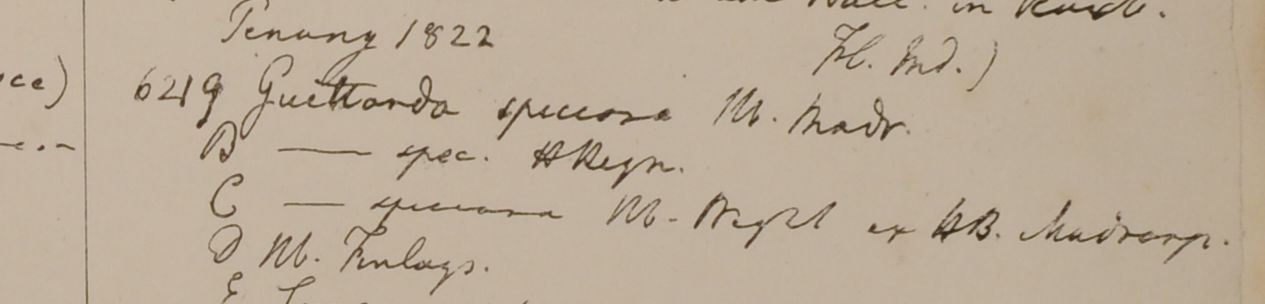 Wall. in Roxb.
Penang 1822
Fl. Ind.)
6219 Guettarda speciosa M. Madr.
B — spec. HRegn.
C — speciosa M. Wight ex HB. Madrasp.
D M. Finlays.